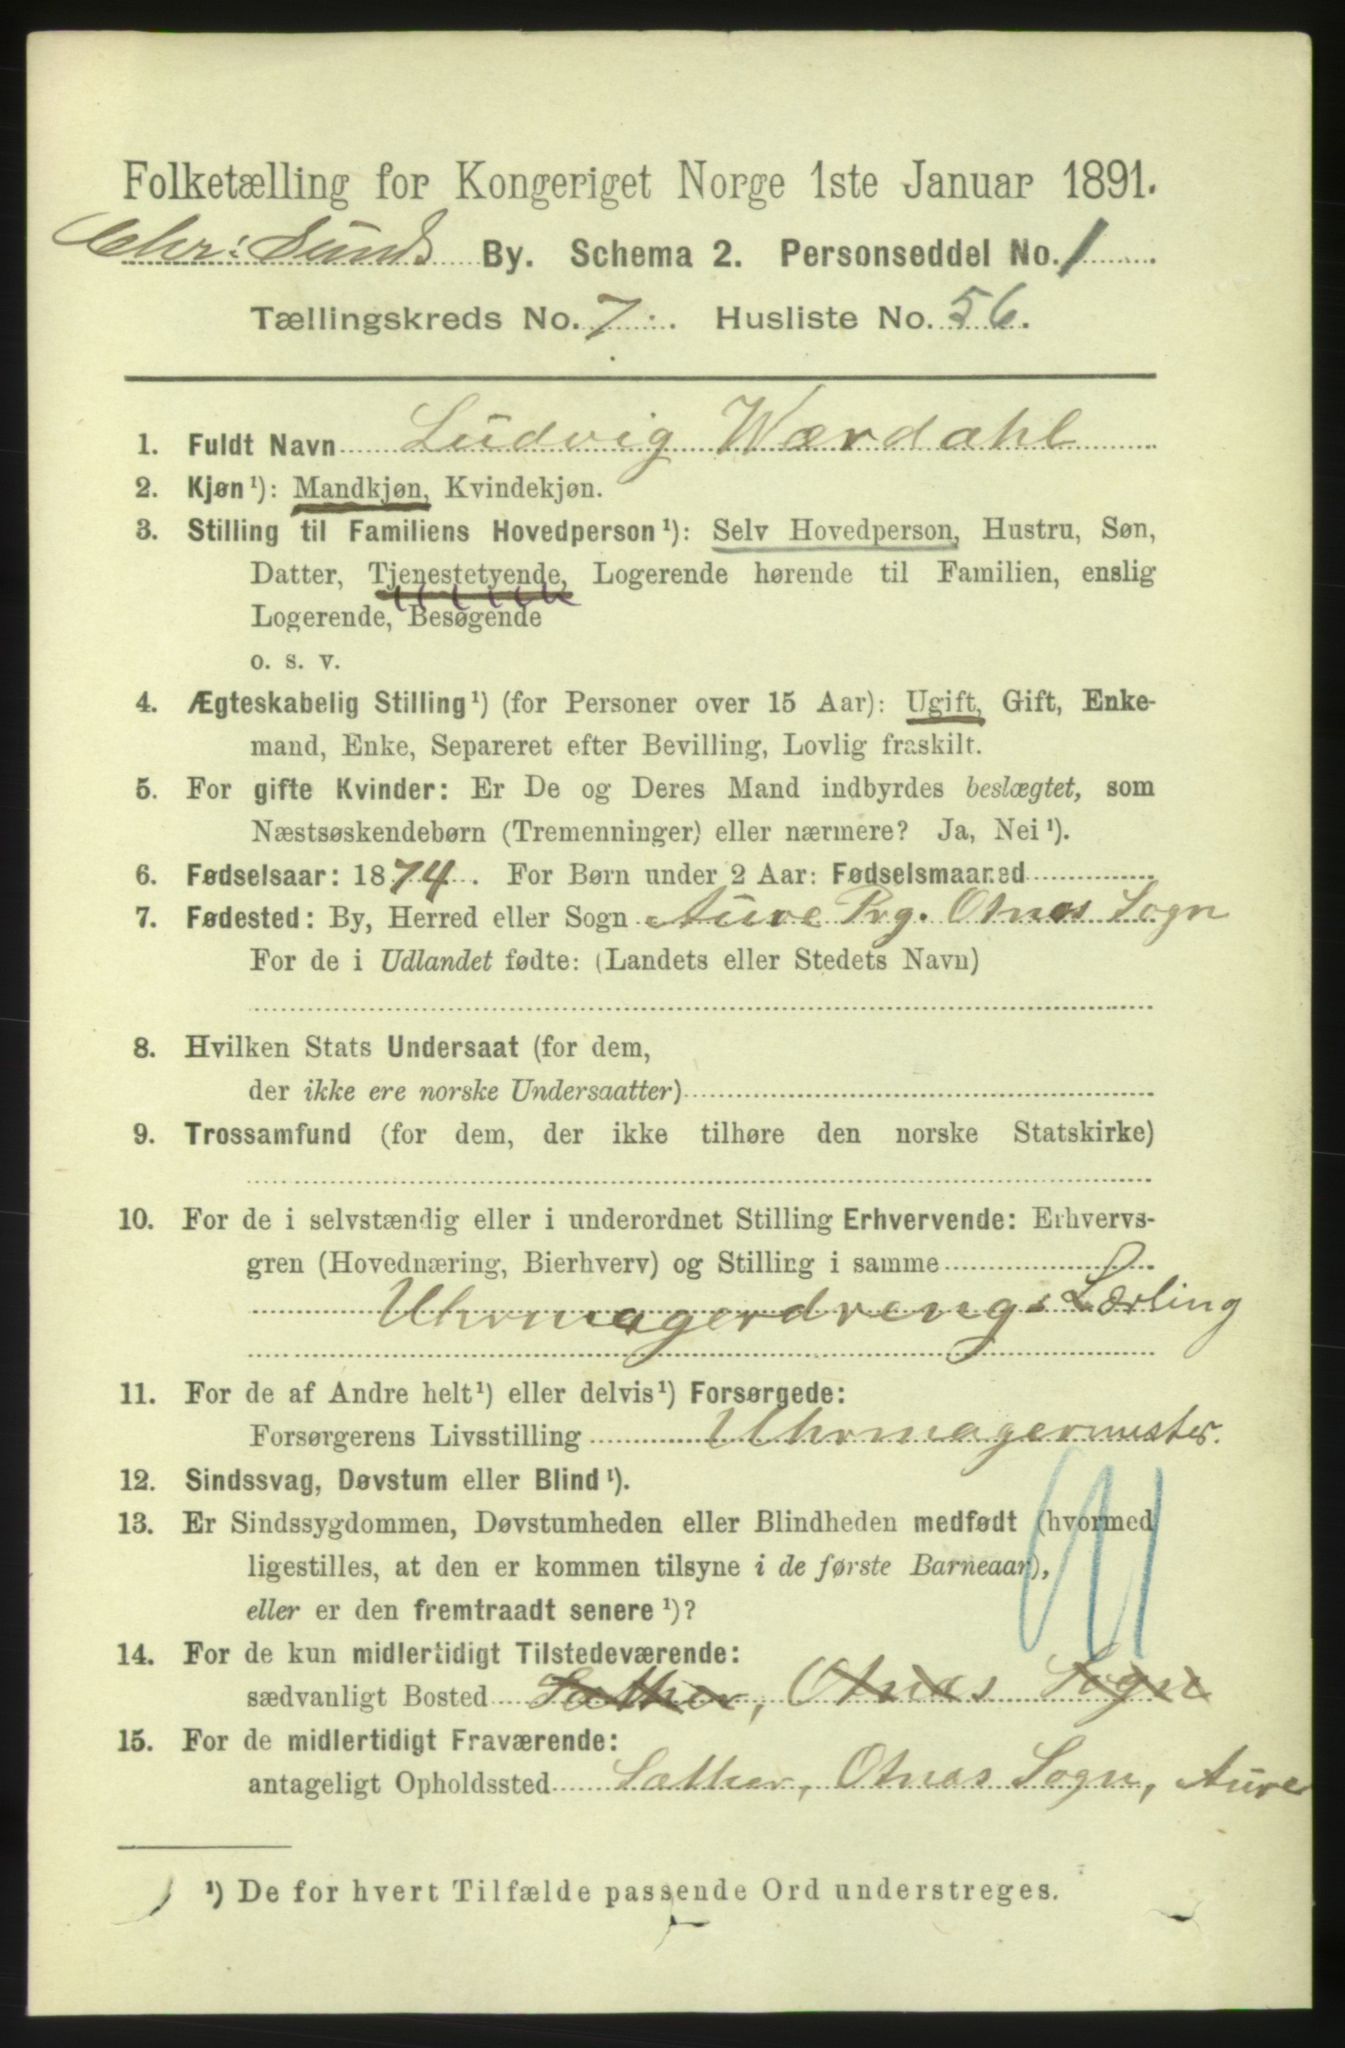 Folketælling for Kongeriget Norge 1ste Januar 1891.
Chr: Sunds By. Schema 2. Personseddel No. 1
Tællingskreds No. 7. Husliste No. 56.
1. Fuldt Navn Ludvig Wærdahl
2. Kjøn¹): Mandkjøn, Kvindekjøn.
3. Stilling til Familiens Hovedperson¹): Selv Hovedperson, Hustru, Søn,
Datter, Tjenestetyende, Logerende hørende til Familien, enslig
Logerende, Besøgende
o. s. v.
4. Ægteskabelig Stilling¹) (for Personer over 15 Aar): Ugift, Gift, Enke-
mand, Enke, Separeret efter Bevilling, Lovlig fraskilt.
5. For gifte Kvinder: Er De og Deres Mand indbyrdes beslægtet, som
Næstsøskendebørn (Tremenninger) eller nærmere? Ja, Nei¹).
6. Fødselsaar: 1874. For Børn under 2 Aar: Fødselsmaaned
7. Fødested: By, Herred eller Sogn Aure Prg. Otnæs Sogn
For de i Udlandet fødte: (Landets eller Stedets Navn)
8. Hvilken Stats Undersaat (for dem,
der ikke ere norske Undersaatter)
9. Trossamfund (for dem, der ikke tilhøre den norske Statskirke)
10. For de i selvstændig eller i underordnet Stilling Erhvervende: Erhvervs-
gren (Hovednæring, Bierhverv) og Stilling i samme
Uhrmagerdreng Lærling
11. For de af Andre helt¹) eller delvis¹) Forsørgede:
Forsørgerens Livsstilling Uhrmagermester.
12. Sindssvag, Døvstum eller Blind¹).
13. Er Sindssygdommen, Døvstumheden eller Blindheden medfødt (hvormed
ligestilles, at den er kommen tilsyne i de første Barneaar),
eller er den fremtraadt senere¹)?
14. For de kun midlertidigt Tilstedeværende:
sædvanligt Bosted Sæther, Otnæs Sogn
15. For de midlertidigt Fraværende:
antageligt Opholdssted Sæther, Otnæs Sogn, Aure
¹) De for hvert Tilfælde passende Ord understreges.